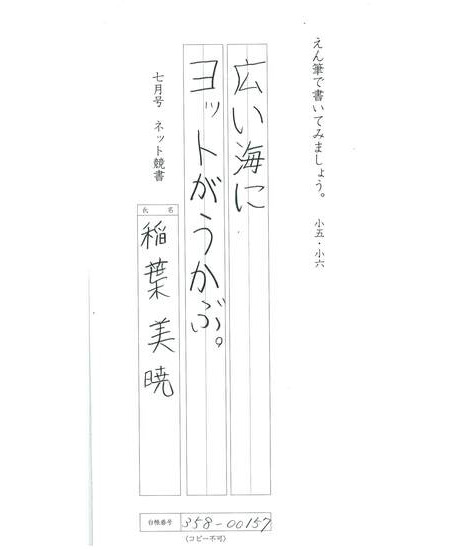 えん筆で書いてみましょう。 小五・小六
広い海に
ヨットがうかぶ。
七月号 ネット競書
氏名
稲葉美暁
台帳番号 358-00157
(コピー不可)